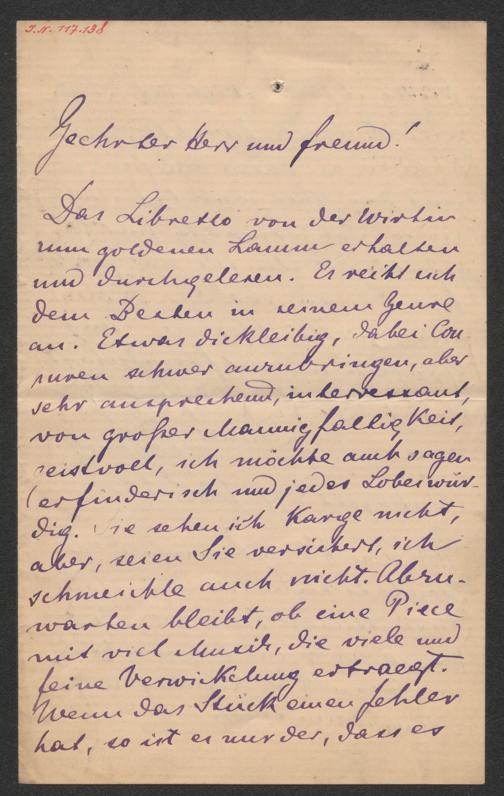 I.N. 117.138
Geehrter Herr und Freund!
Das Libretto von der Wirtin
zum goldenen Lamm erhalten
und durchgelesen. Es reiht sich
dem Besten in seinem Genre
an. Etwas dickleibig, dabei Cou
puren schwer anzubringen, aber
sehr ansprechend, interressant,
von großer Mannigfaltigkeit,
geistvoll, ich möchte auch sagen
erfinderisch und jedes Lobes wür-
dig. Sie sehen ich karge nicht,
aber, seien Sie versichert, ich
schmeichle auch nicht. Abzu-
warten bleibt, ob eine Piece
mit viel Musik, die viele und
feine Verwickelung ertraegt.
Wenn das Stück einen Fehler
hat, so ist es nur der, dass es